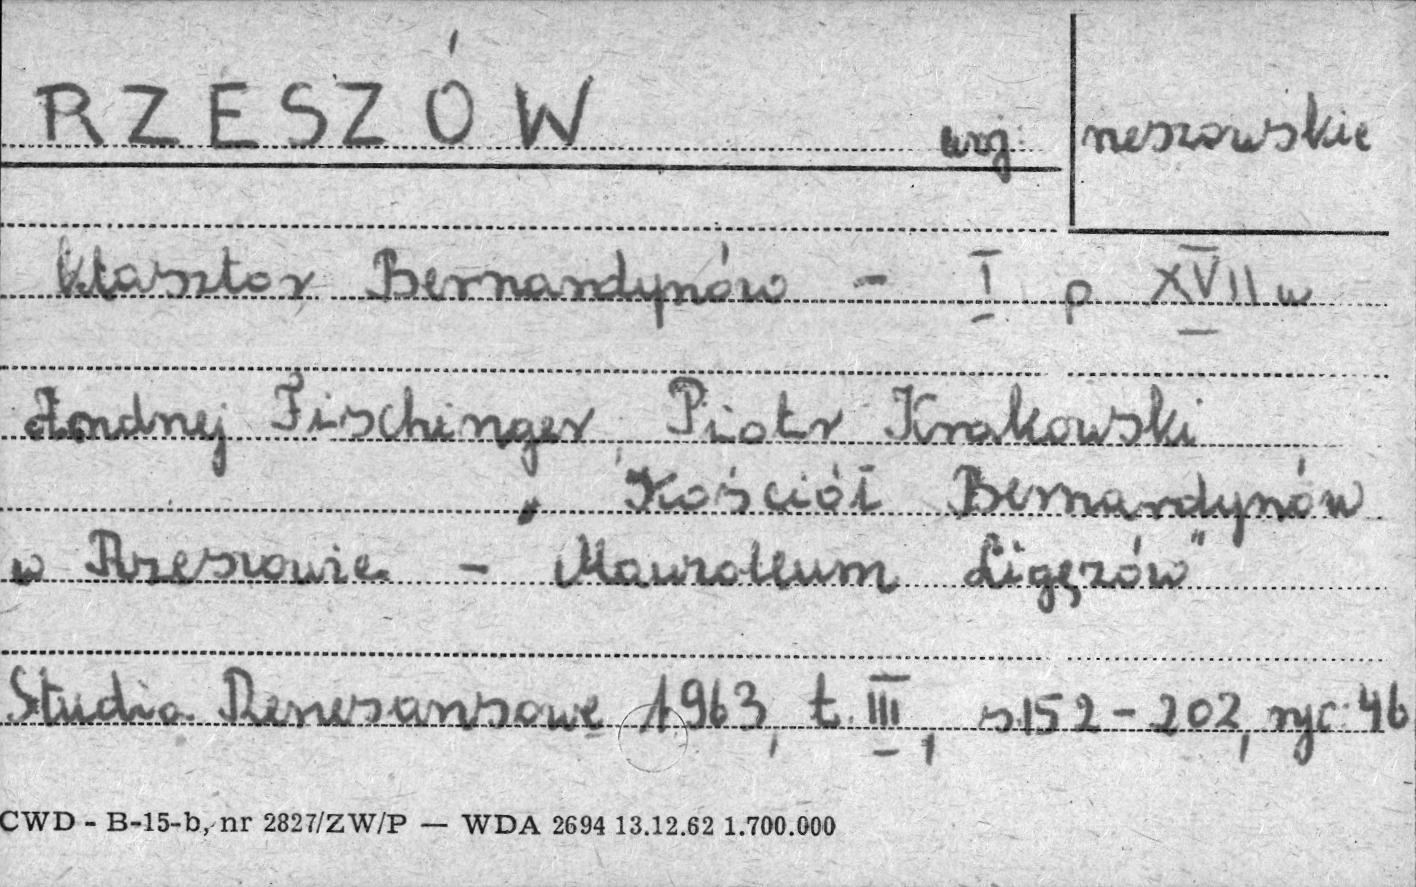 RZESZÓW woj: rzeszowskie
Klasztor Bernardynów - I p XVII w
Andrzej Fischinger, Piotr Krakowski
„Kościół Bernardynów
w Rzeszowie - Mauzoleum Ligęzów"
Studia Renesansowe 1963, t. III, s152-202, ryc: 46
CWD - B-15-b, nr 2827/ZW/P — WDA 2694 13.12.62 1.700.000